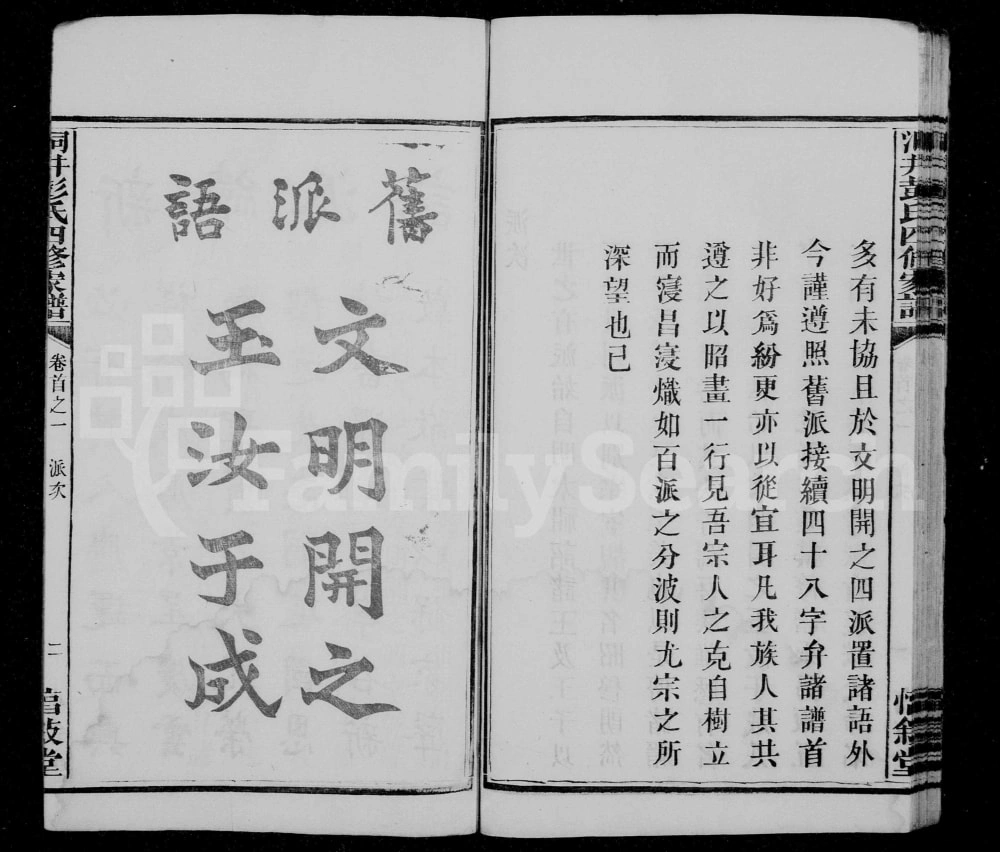 多有未協且於文明開之四派置諸語外
今謹遵照舊派接續四十八字弁諸譜首
非好爲紛更亦以從宜耳凡我族人其共
遵之以昭畫一行見吾宗人之克自樹立
而寖昌寖熾如百派之分波則尤宗之所
深望也已
舊派語
文明開之
玉汝于成
洞井彭氏四修家譜
卷首之一
派次
二
敘堂
FamilySearch